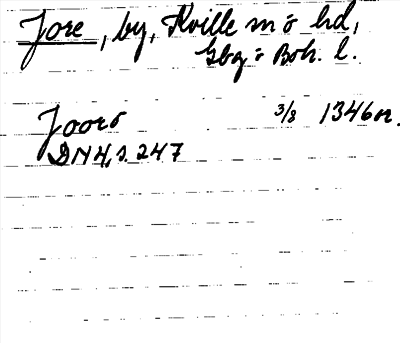 Jore, by, Kville sn o hd,
Gbg o Boh. l.
Jooro 3/8 1346 n.
DN 4, s. 247